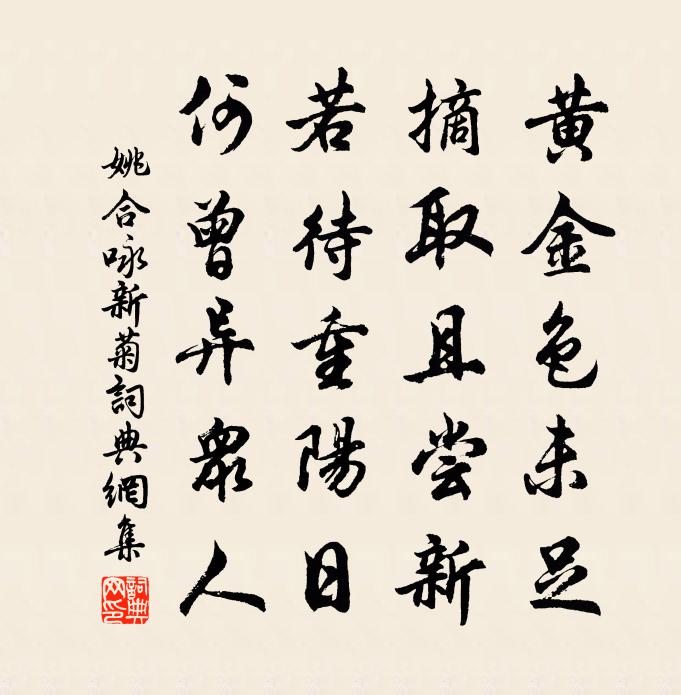 黄金色未足
摘取且尝新
若待重陽日
何曾异眾人
姚合咏新菊詞典網集
詞典
网印